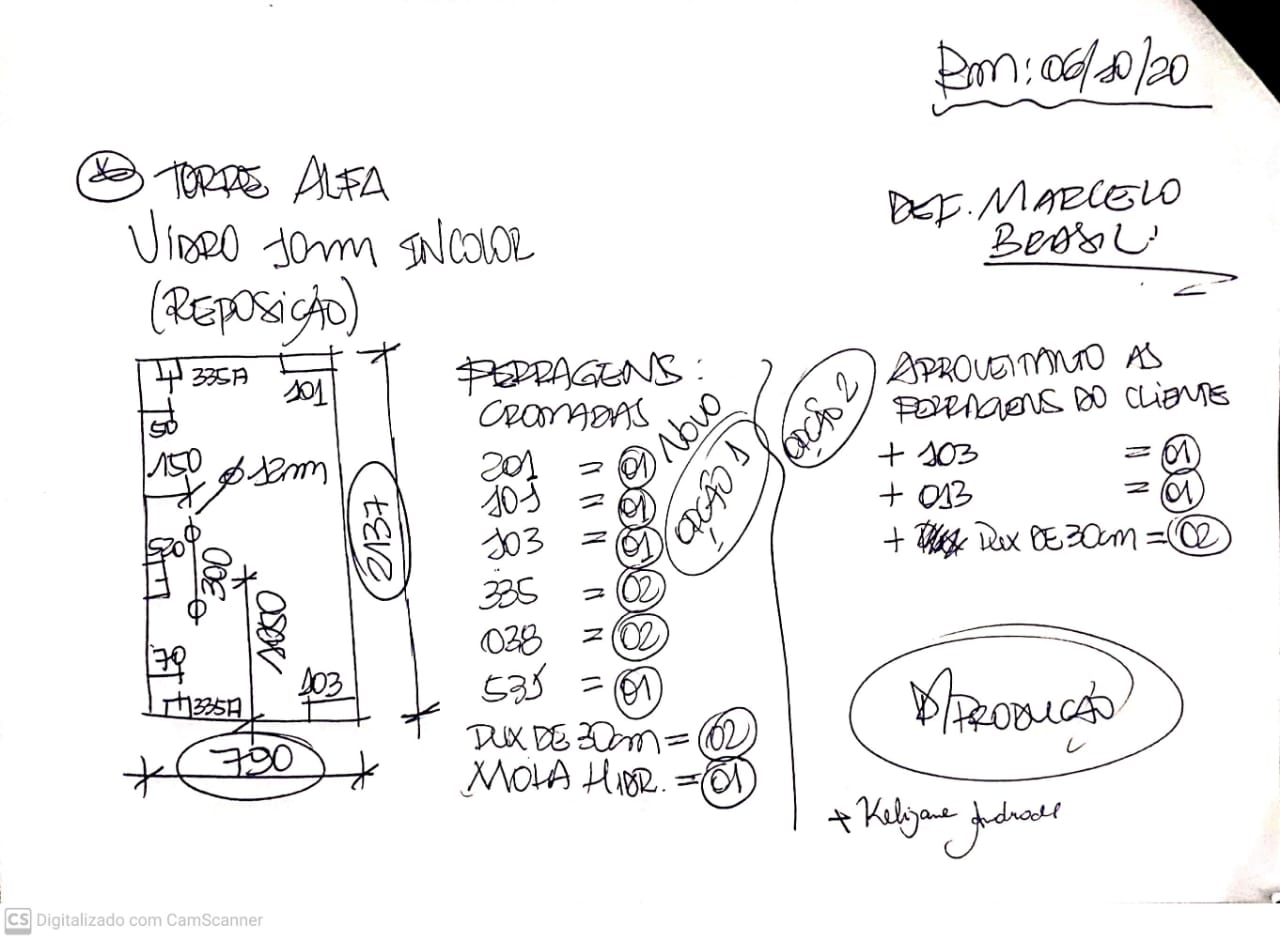 Bm: 06/10/20
TORRE ALFA
VIDRO 10mm INCOLOR
(REPOSIÇÃO)
REF. MARCELO
BRASIL
335A
101
50
150
Ø 12mm
300
2137
1050
70
335A
103
790
FERRAGENS:
CROMADAS
NOVO
OPÇÃO 1
201 = 01
101 = 01
103 = 01
335 = 02
038 = 02
531 = 01
DUX DE 30cm = 02
MOLA HIDR. = 01
OPÇÃO 2
APROVEITANTO AS
FERRAGENS DO CLIENTE
+ 103 = 01
+ 013 = 01
+ DUX DE 30cm = 02
P/PRODUÇÃO
+ Kelizane Andrade
CS Digitalizado com CamScanner